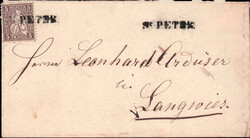 PETER St PETER
Herrn Leonhard Ardüser
in
Langwies.